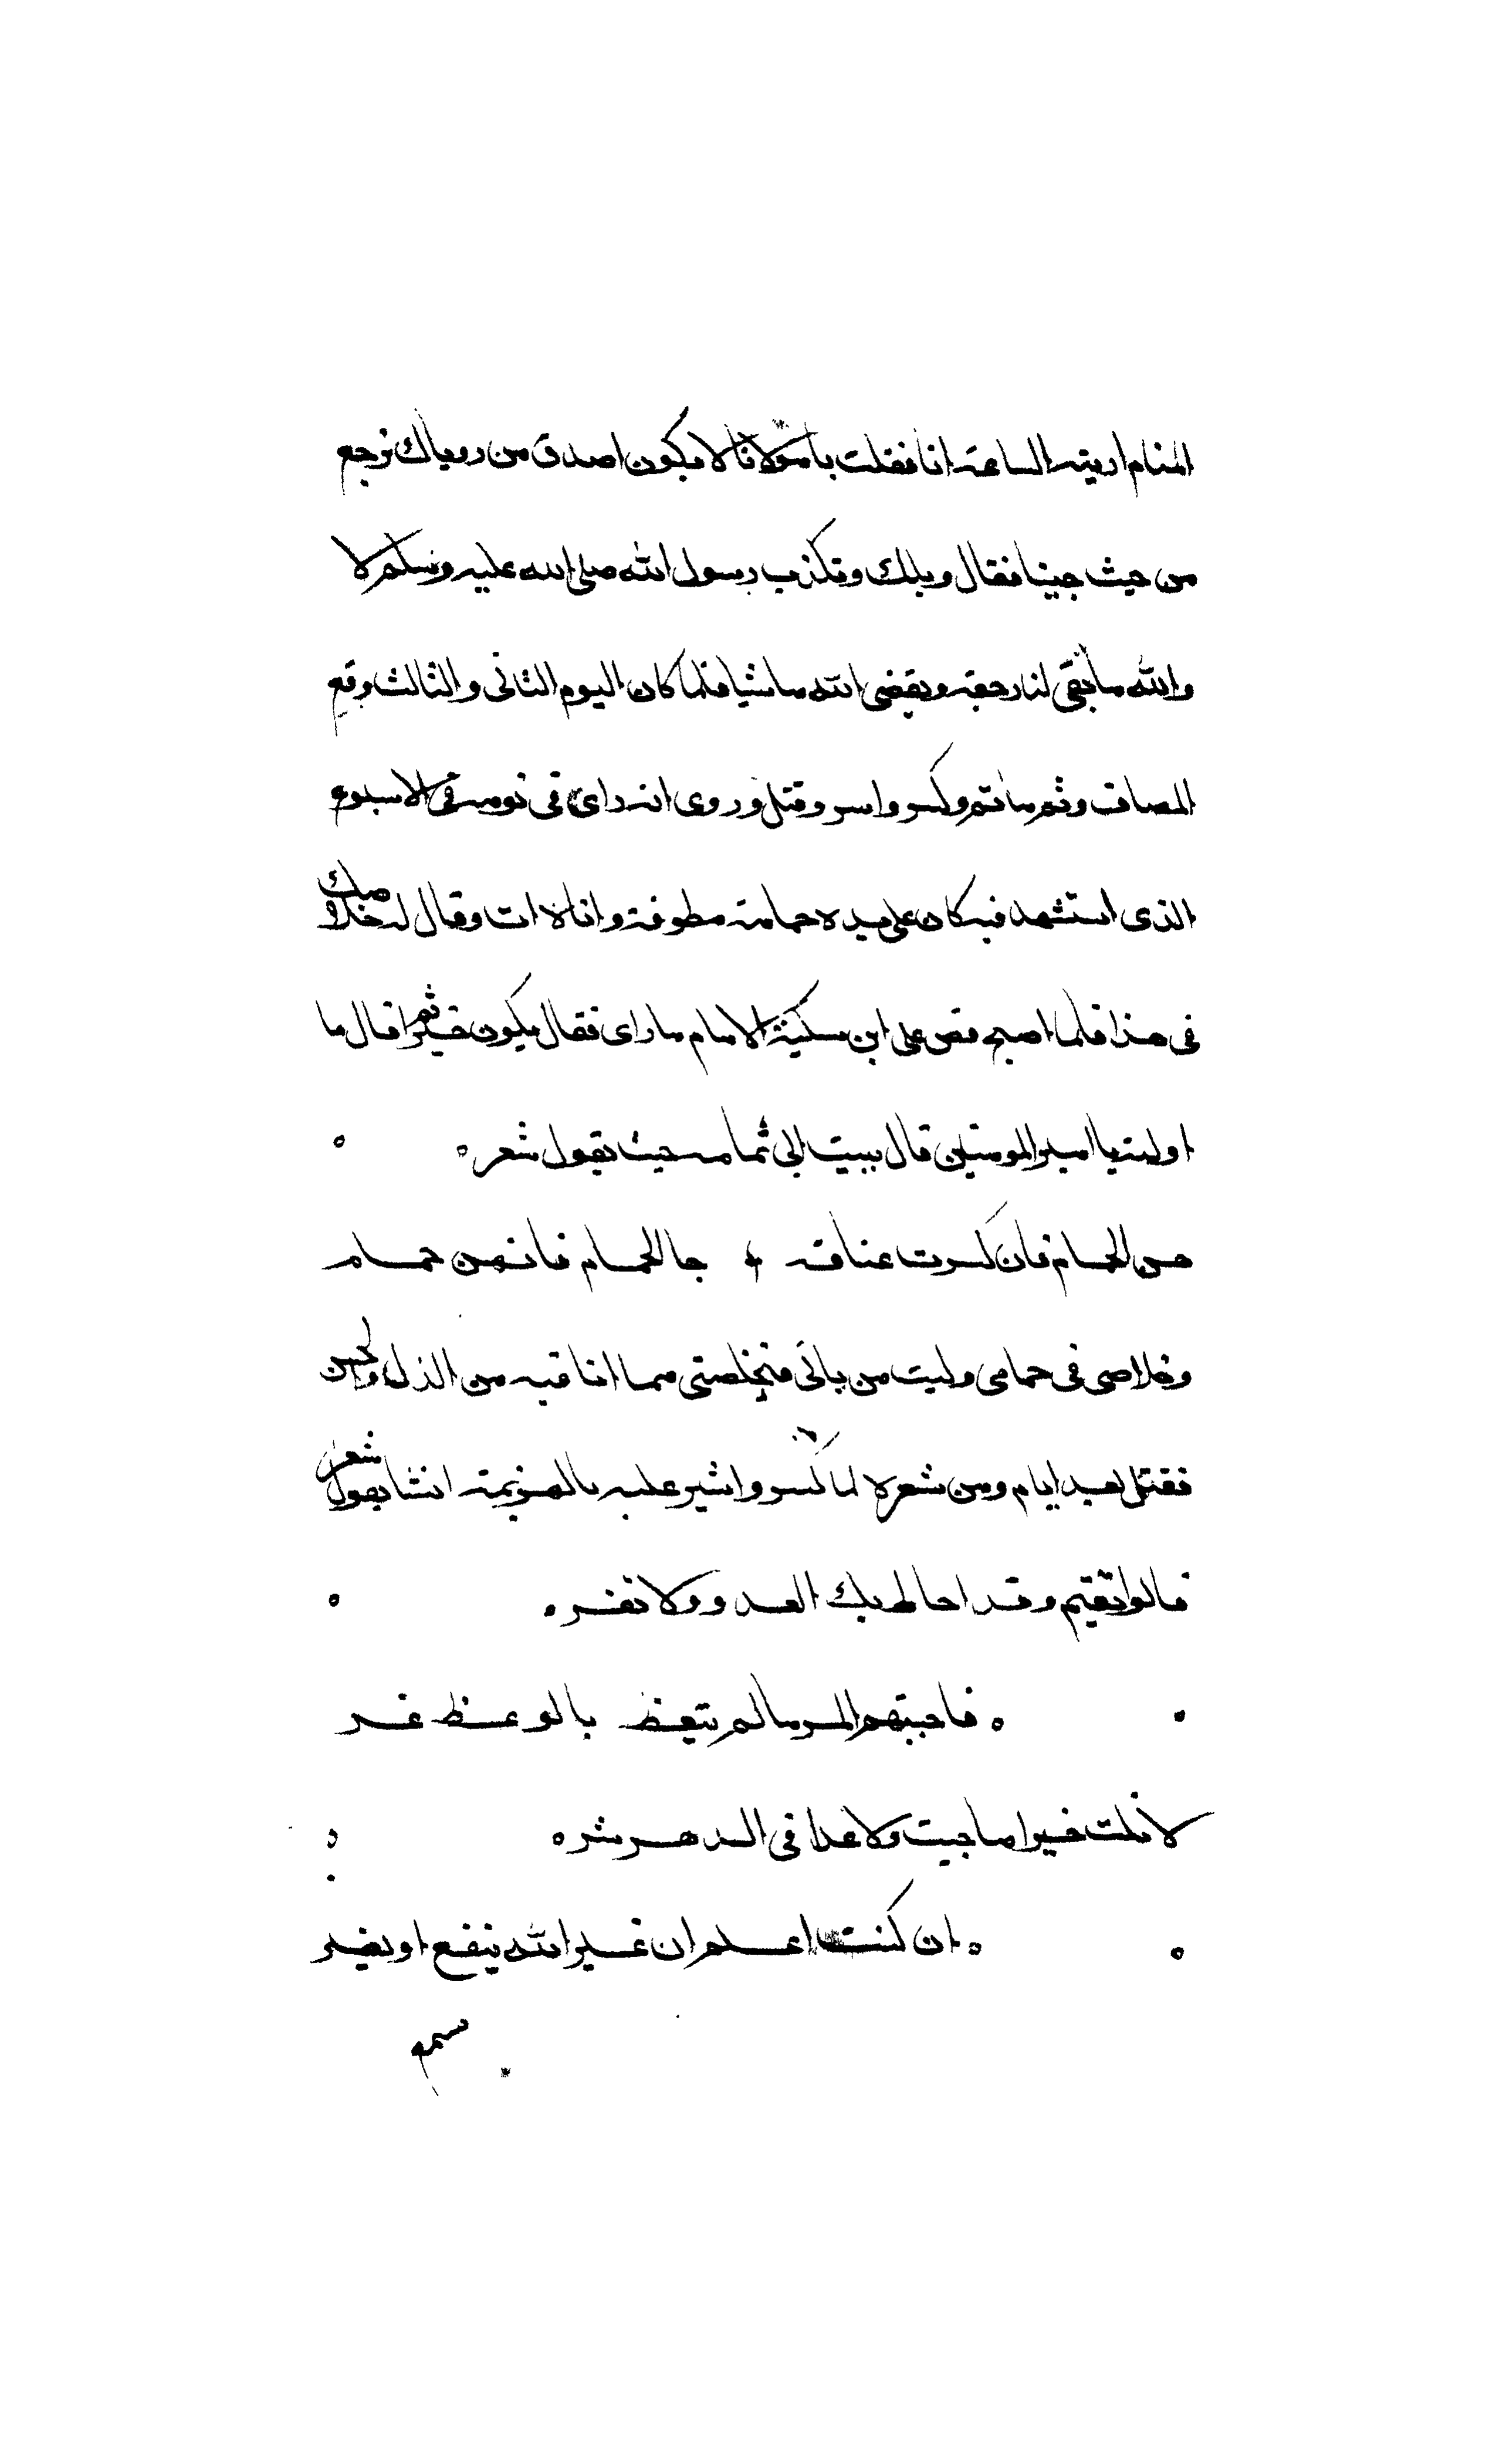 المنام اريته الساعة انا فقلت يا مولانا لا يكون اصدق من روياك نرجع
من حيث جينا فقال ويلك وتكذب رسول الله صلى الله عليه وسلم لا
والله ما بقى لنا رجعة ويقضى الله ما شيا فلما كان اليوم الثانى والثالث وقع
المصاف وتم ما تم وكسر واسر وقتل وروى انه راى فى نومه فى الاسبوع
الذى استشهد فيه كان على يده حمامة مطوقة وانالا ات وقال له خلاصك
فى هذا فلما اصبح قص على ابن سكينة الامام ما راى فقال يكون خيرا ثم قال ما
اولته يا امير المومنين قال ببيت ابى تمام حيث يقول شعر
هن الحمام فان كسرت عيافة جا الحمام فانهن حمام
وخلاصى فى حمامى وليت من ياتى فيخلصنى مما انا فيه من الذل والحبس
فقتل بعد ايام ومن شعره لما كسر واشير عليه بالهزيمة انشا يقول شعر
قالوا تقيم وقد احاط بك العدو ولا تفر
فاجبتهم المر ما لم يتعظ بالوعظ غر
لا نلت خيرا ما حييت ولا عدا فى الدهر شر
ان كنت اعلم ان غير الله ينفع او يضر